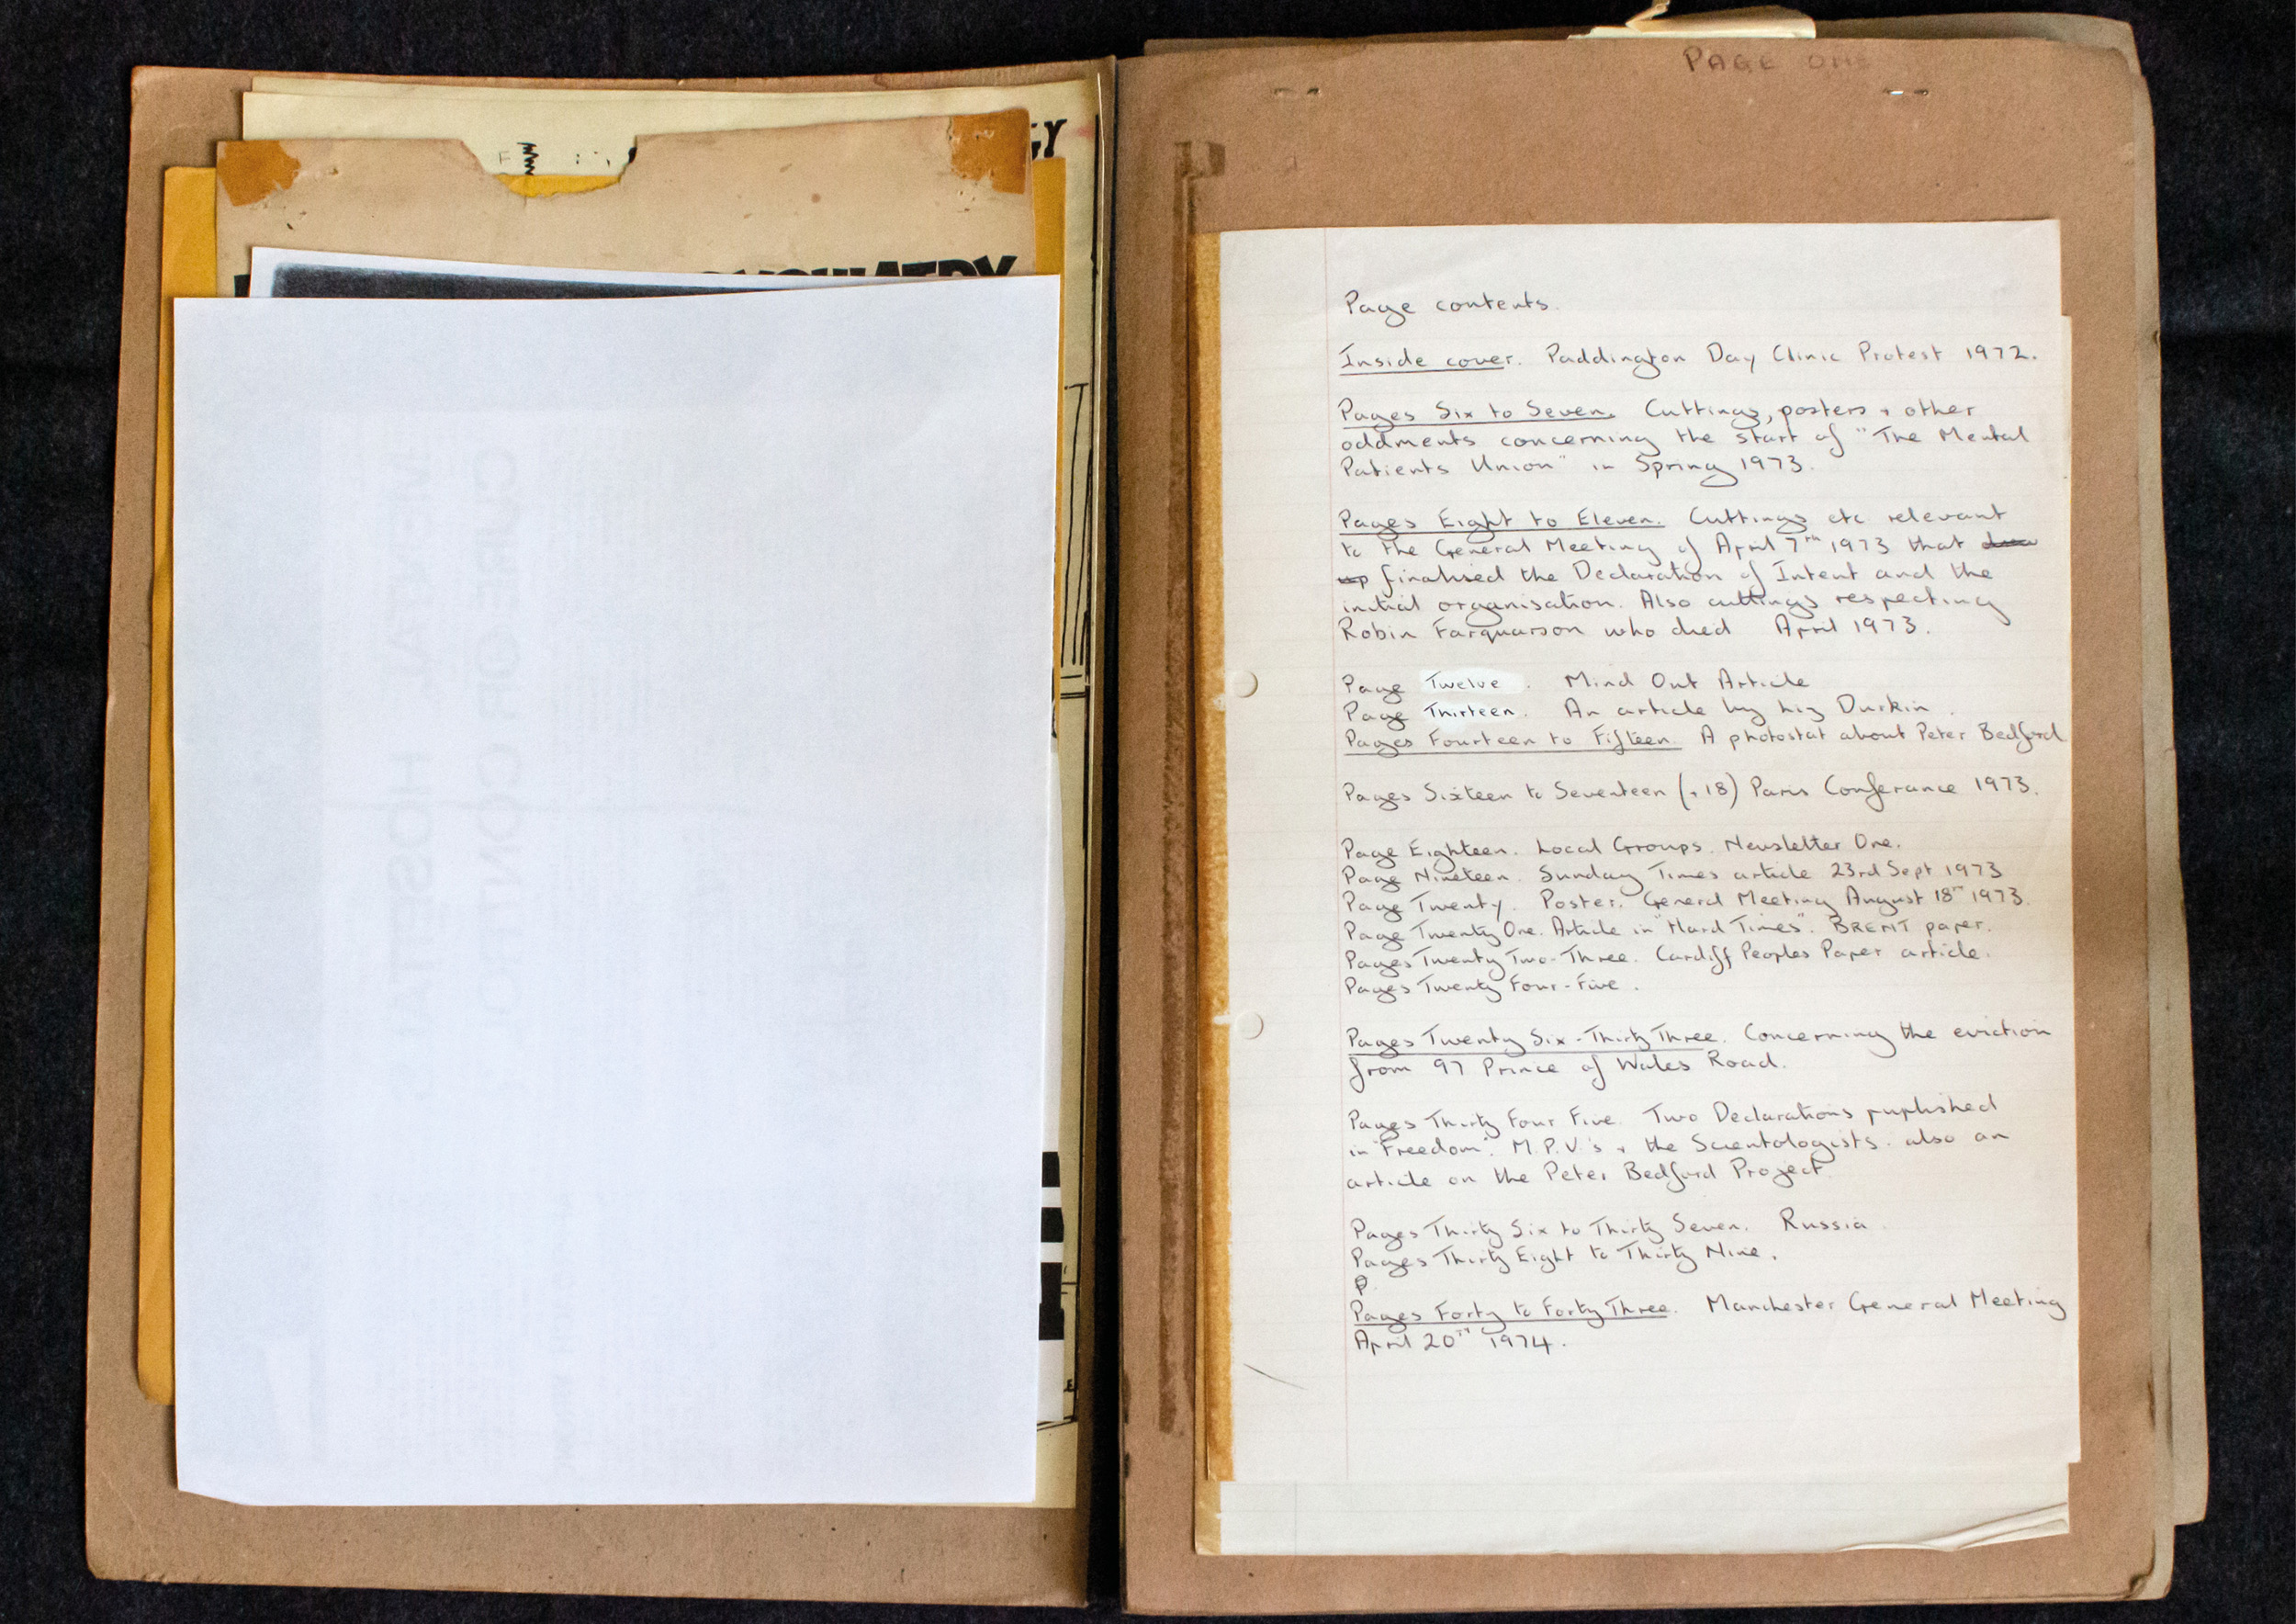 PSYCHIATRY
PAGE ONE
Page contents.
Inside cover. Paddington Day Clinic Protest 1972.
Pages Six to Seven. Cuttings, posters + other
oddments concerning the start of "The Mental
Patients Union" in Spring 1973.
Pages Eight to Eleven. Cuttings etc relevant
to the General Meeting of April 7th 1973 that
up finalised the Declaration of Intent and the
initial organisation. Also cuttings respecting
Robin Farquarson who died April 1973.
Page Twelve. Mind Out Article
Page Thirteen. An article by Liz Durkin.
Pages Fourteen to Fifteen. A photostat about Peter Bedford
Pages Sixteen to Seventeen (+18) Paris Conferance 1973.
Page Eighteen. Local Groups. Newsletter One.
Page Nineteen. Sunday Times article 23rd Sept 1973
Page Twenty. Poster. General Meeting August 18th 1973.
Page Twenty One. Article in "Hard Times". BRENT paper.
Pages Twenty Two-Three. Cardiff Peoples Paper article.
Pages Twenty Four-Five.
Pages Twenty Six-Thirty Three. Concerning the eviction
from 97 Prince of Wales Road.
Pages Thirty Four Five. Two Declarations puplished
in "Freedom". M.P.U.'s + the Scientologists. also an
article on the Peter Bedford Project.
Pages Thirty Six to Thirty Seven. Russia.
Pages Thirty Eight to Thirty Nine.
P.
Pages Forty to Forty Three. Manchester General Meeting
April 20th 1974.